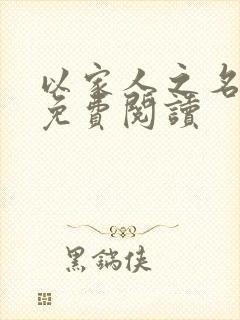 以家人之名
免費閱讀
黑鍋俠